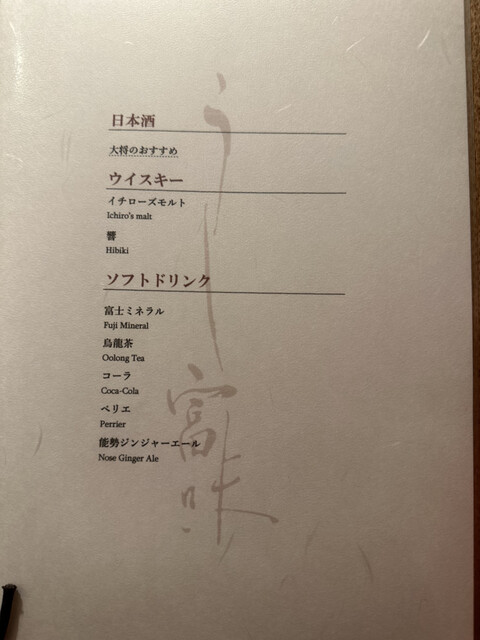 日本酒
大将のおすすめ
ウイスキー
イチローズモルト
Ichiro's malt
響
Hibiki
ソフトドリンク
富士ミネラル
Fuji Mineral
烏龍茶
Oolong Tea
コーラ
Coca-Cola
ペリエ
Perrier
能勢ジンジャーエール
Nose Ginger Ale
うし富味